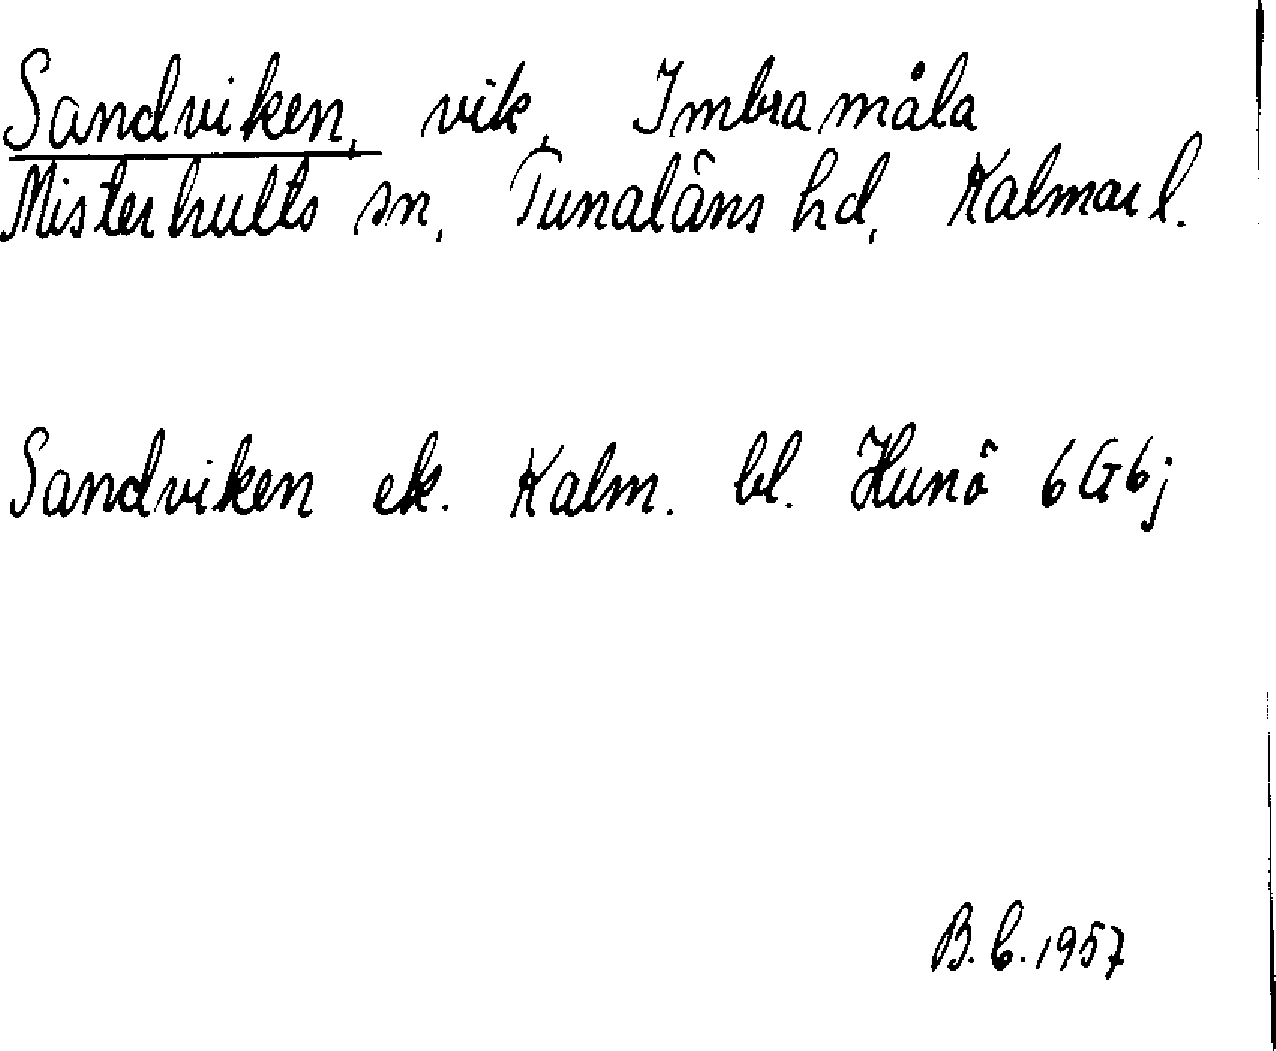 Sandviken, vik, Imbramåla
Misterhults sn, Tunaläns hd, Kalmar l.
Sandviken ek. Kalm. bl. Hunö 6G6j
B.C. 1957